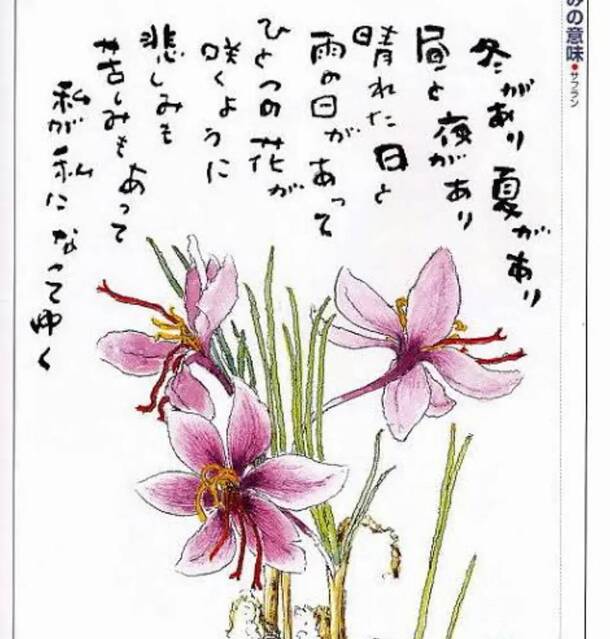 みの意味●サフラン
冬があり夏があり
昼と夜があり
晴れた日と
雨の日があって
ひとつの花が
咲くように
悲しみも
苦しみもあって
私が私になってゆく